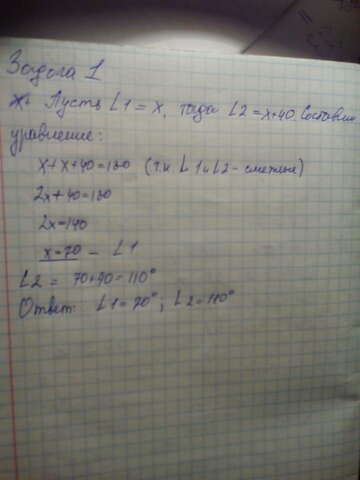 Задача 1
Пусть ∠1 = x, тогда ∠2 = x+40. Составим
уравнение:
x+x+40=180 (т.к. ∠1 и ∠2 - смежные)
2x+40=180
2x=140
x=70 - ∠1
∠2 = 70+40=110°
Ответ: ∠1=70°; ∠2=110°